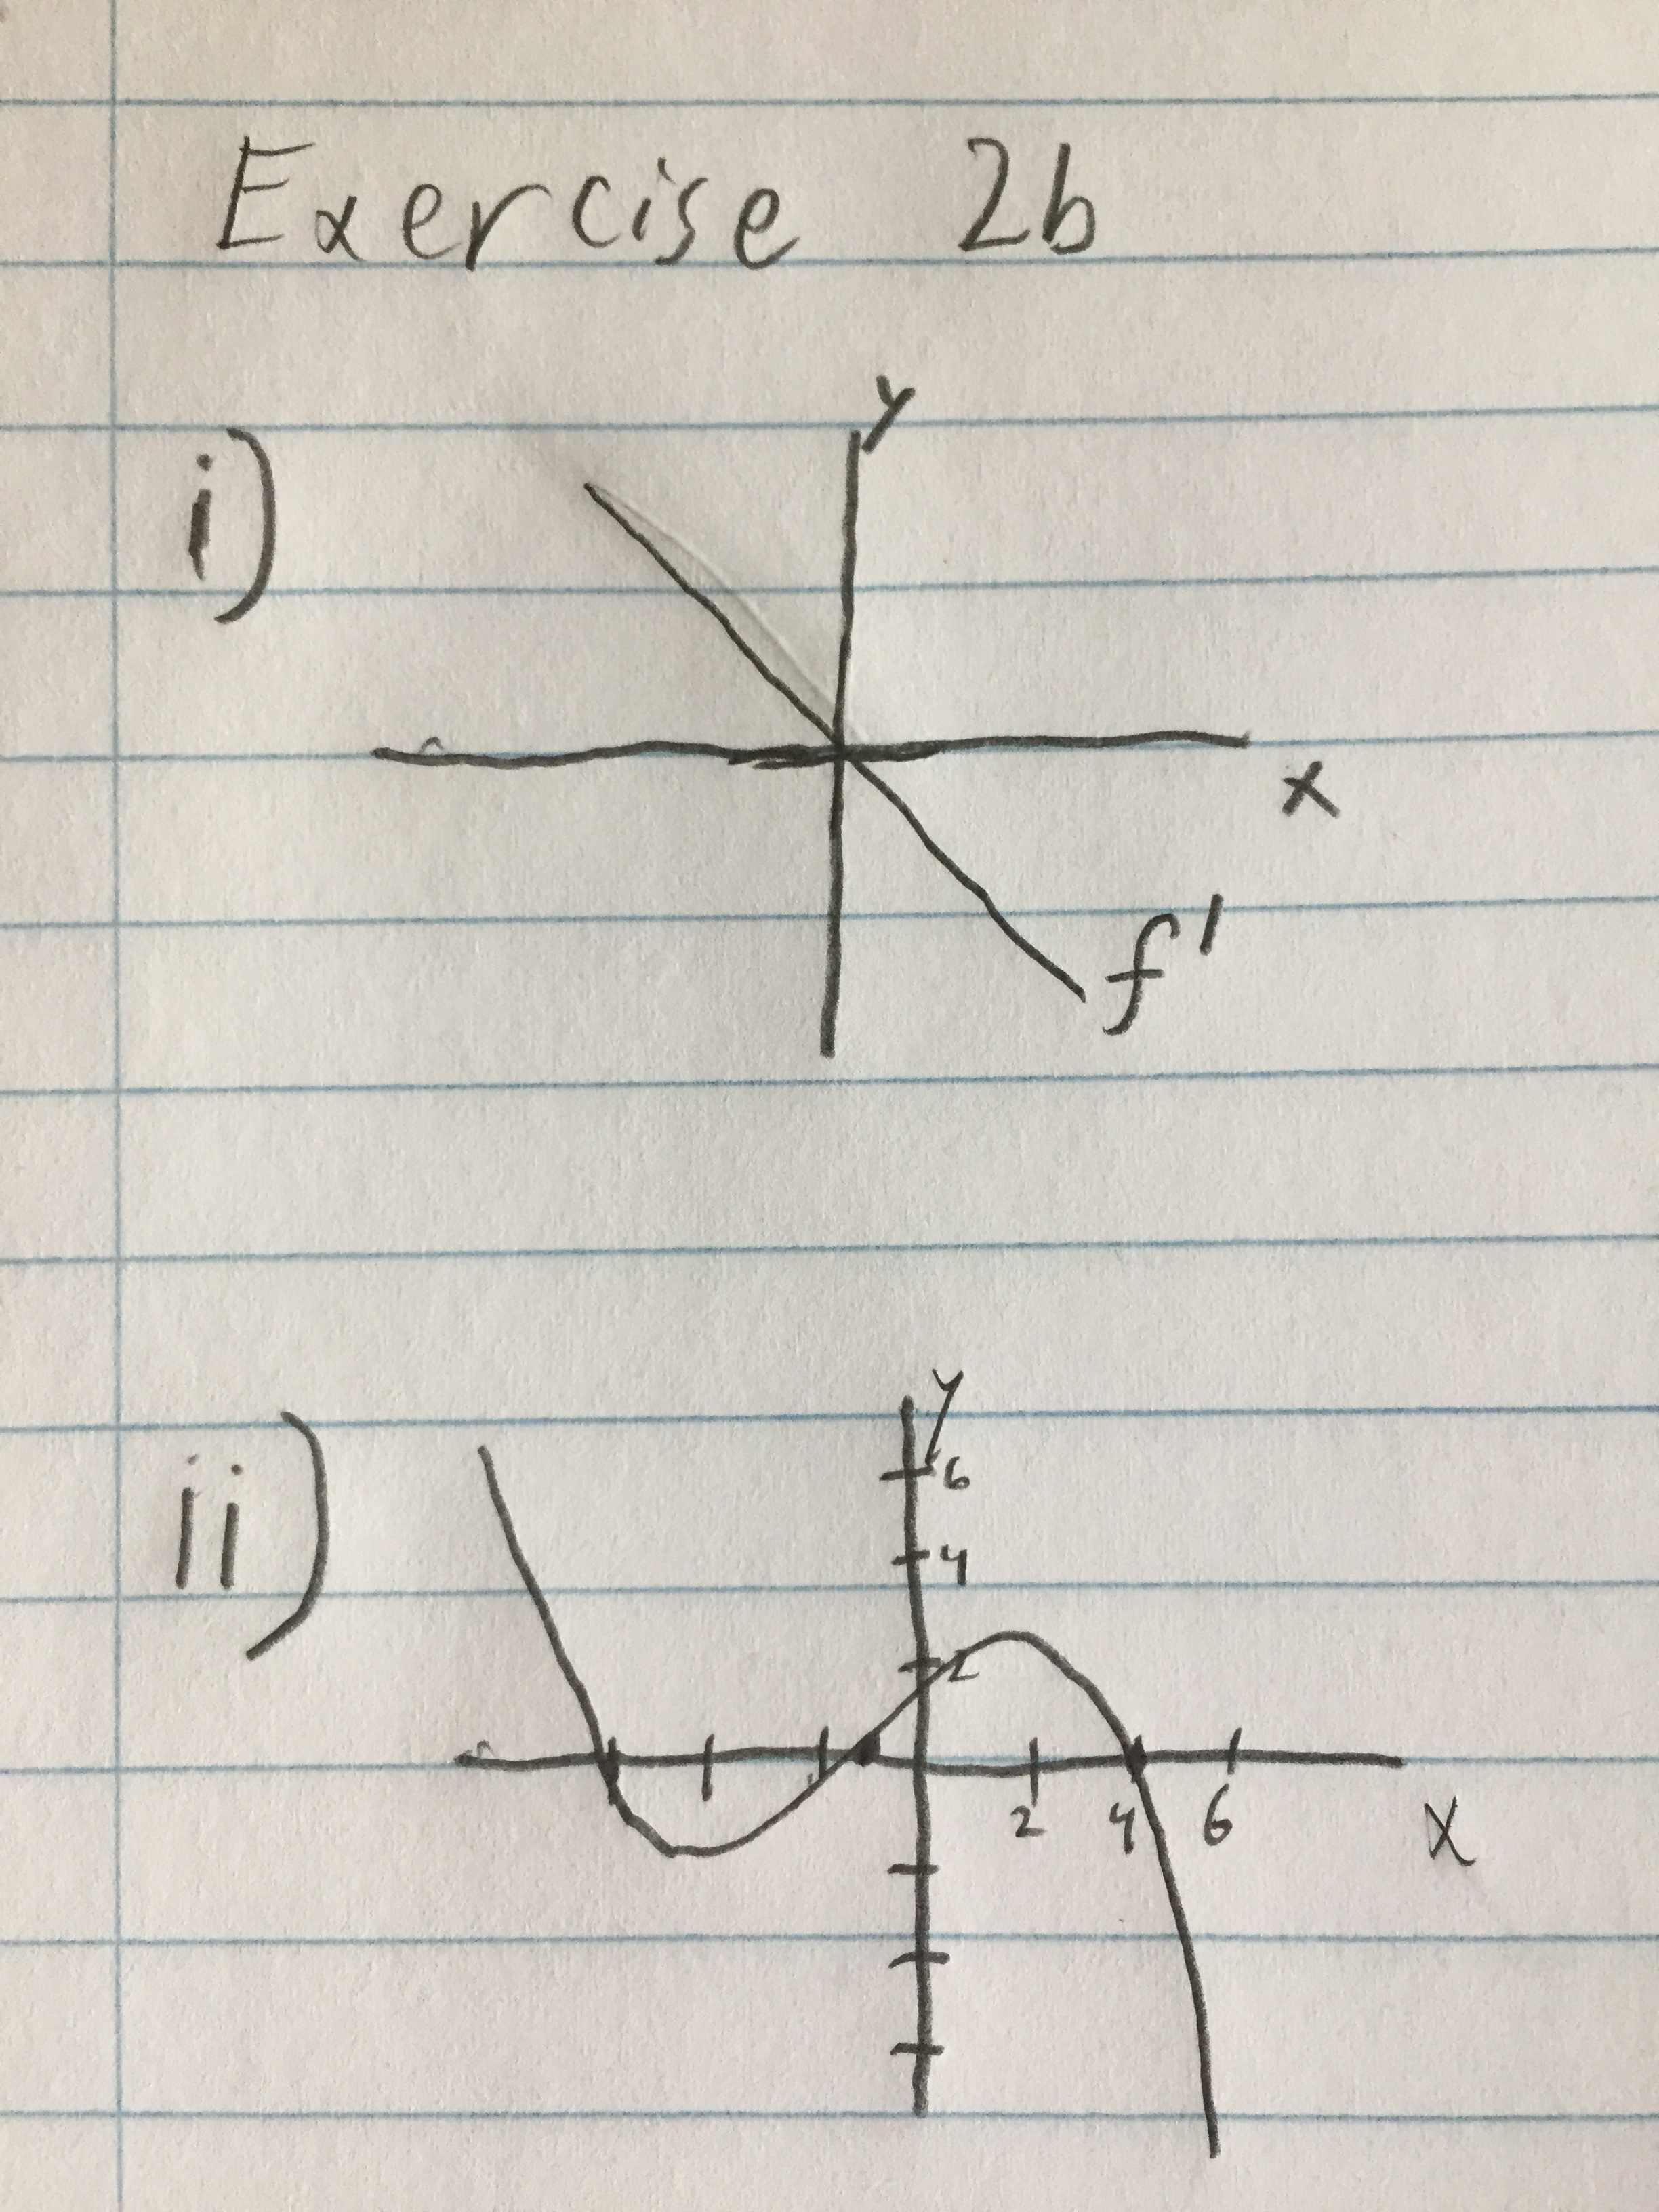 Exercise 2b
i)
y
x
f'
ii)
y
6
4
2
2 4 6
x